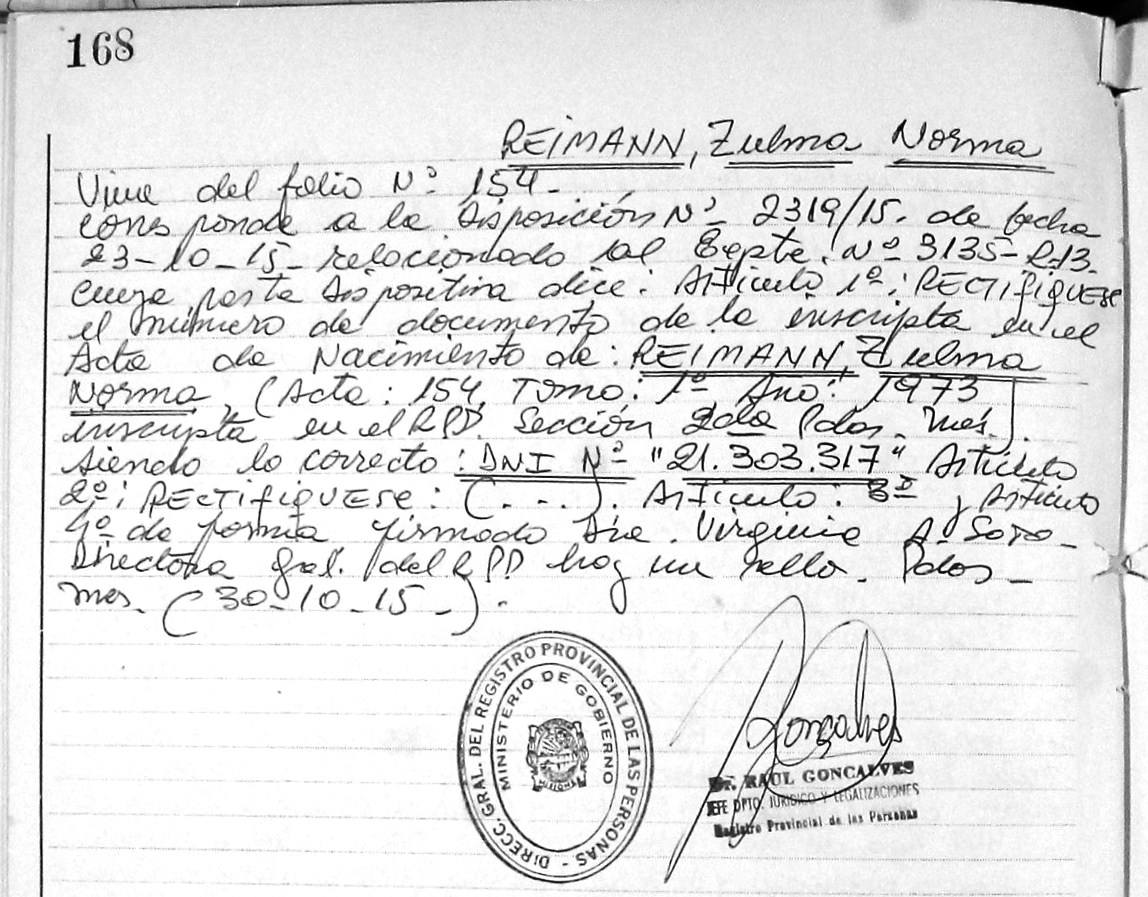 168
REIMANN, Zulma Norma
Viene del folio Nº 154-
corresponde a la Disposición Nº 2319/15. de fecha
23-10-15- relacionado al Expte. Nº 3135-R-13.
Cuya parte dispositiva dice: Artículo 1º: RECTIFIQUESE
el número de documento de la inscripta en el
Acta de Nacimiento de: REIMANN, Zulma
Norma, (Acta: 154, Tomo: 1º Año: 1973
inscripta en el RPP Sección 2da Pdas. Mes.).
siendo lo correcto: DNI Nº "21.303.317" Artículo
2º: RECTIFIQUESE: (...). Artículo: 3º y Artículo
4º de forma firmado Dra. Virginia A. Soto-
Directora Gral. del RPP hay un sello. Pdas-
Mes. (30-10-15-).
DIRECC. GRAL. DEL REGISTRO PROVINCIAL DE LAS PERSONAS -
MINISTERIO DE GOBIERNO
MISIONES
Gonçalves
Dr. RAUL GONCALVES
JEFE DPTO. JURIDICO Y LEGALIZACIONES
Registro Provincial de las Personas